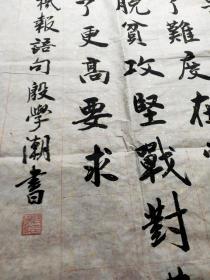 了難度在
脱貧攻堅戰對
了更高要求
報語句殷學潮書